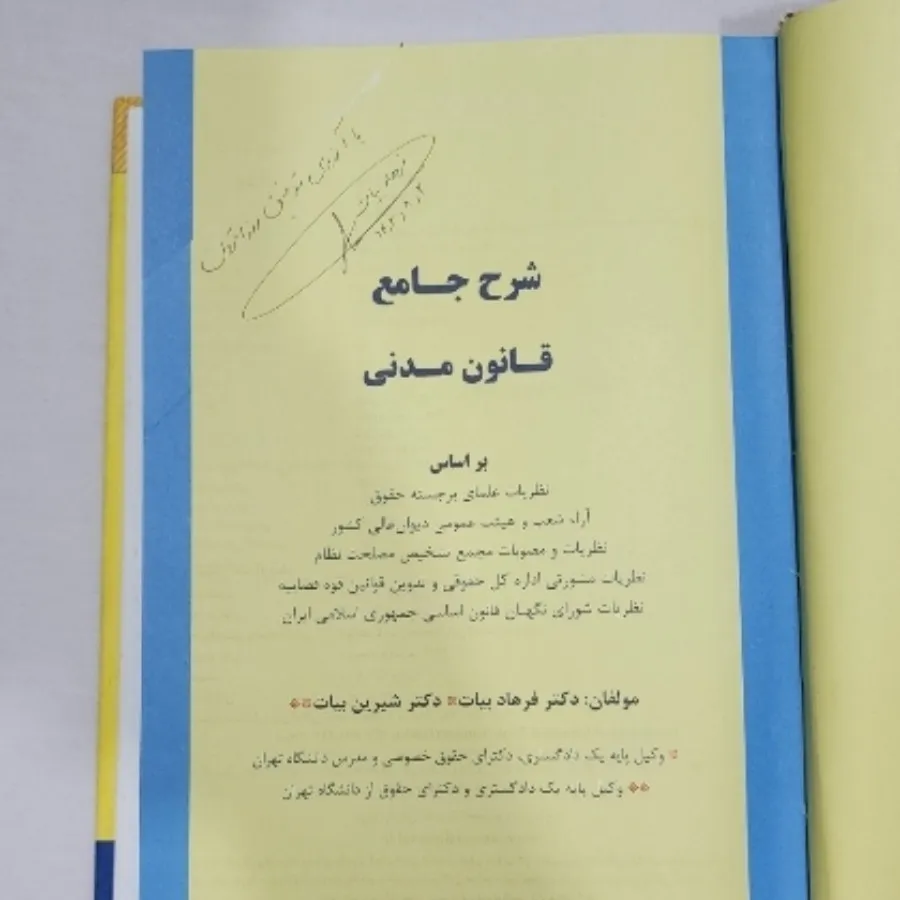 با آرزوی موفقیت روزافزون
فرهاد بیات
شرح جامع
قانون مدنی
بر اساس
نظریات علمای برجسته حقوق
آراء شعب و هیئت عمومی دیوان‌عالی کشور
نظریات و مصوبات مجمع تشخیص مصلحت نظام
نظریات مشورتی اداره کل حقوقی و تدوین قوانین قوه قضاییه
نظریات شورای نگهبان قانون اساسی جمهوری اسلامی ایران
مولفان: دکتر فرهاد بیات* دکتر شیرین بیات**
* وکیل پایه یک دادگستری، دکترای حقوق خصوصی و مدرس دانشگاه تهران
** وکیل پایه یک دادگستری و دکترای حقوق از دانشگاه تهران